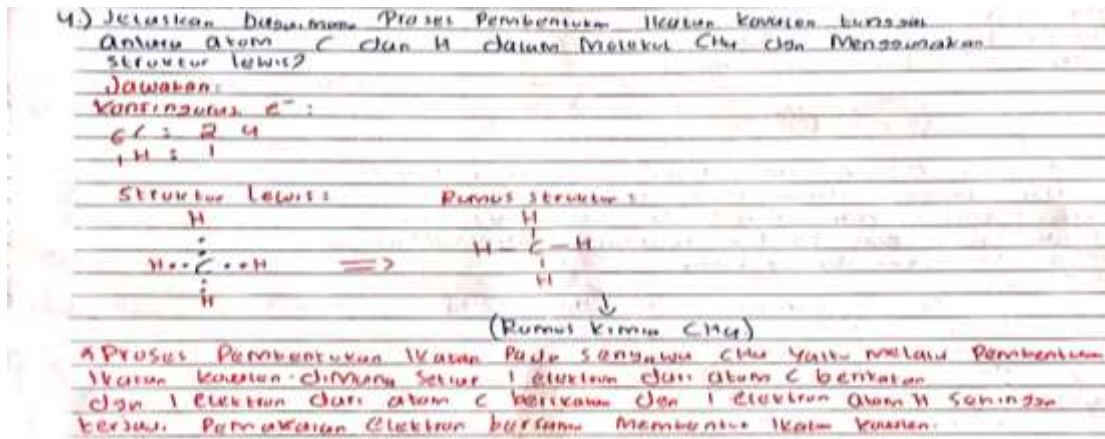 4.) Jelaskan bagaimana Proses Pembentukan Ikatan kovalen tunggal
antara atom C dan H dalam Molekul CH4 dgn Menggunakan
Struktur lewis?
Jawaban:
Konfigurasi e- :
6C : 2 4
1H : 1
Struktur Lewis : Rumus Struktur :
H H
H •• C •• H => H - C - H
H H
(Rumus Kimia CH4)
* Proses Pembentukan Ikatan Pada senyawa CH4 Yaitu melalui Pembentukan
Ikatan kovalen dimana Setiap 1 elektron dari atom C berikatan
dgn 1 elektron dari atom C berikatan dgn 1 elektron atom H sehingga
terjadi Pemakaian elektron bersama membentuk Ikatan kovalen.